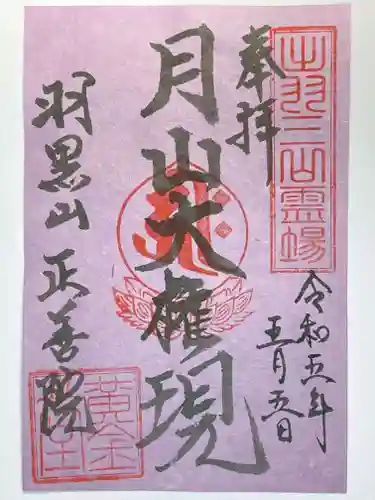 奉拝
出羽三山霊場
令和五年
五月五日
月山大権現
羽黒山 正善院
黄金